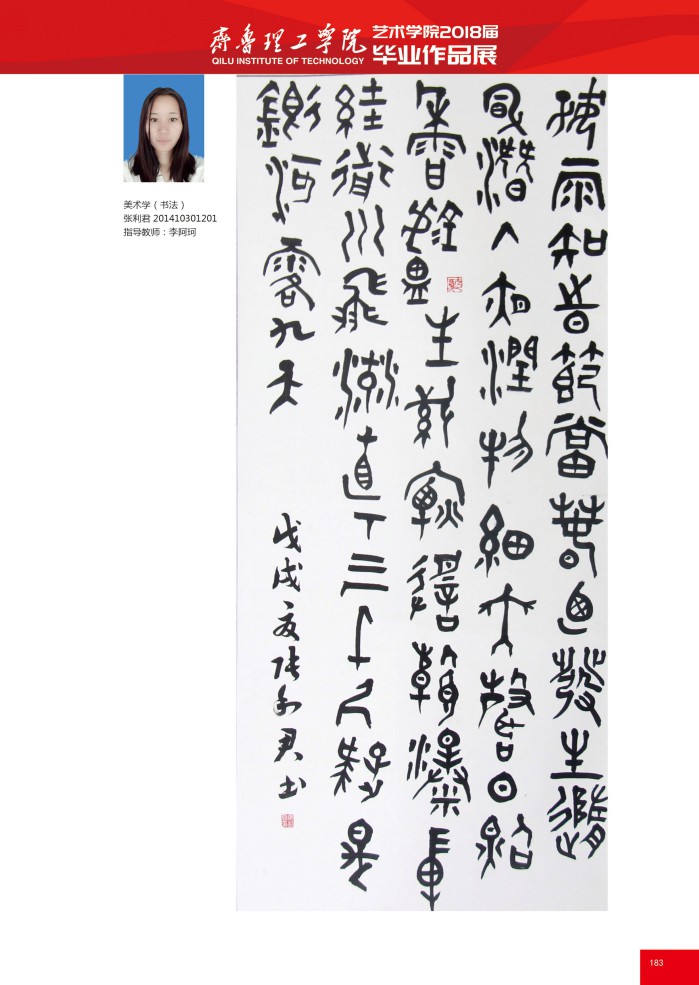 齊魯理工學院
QILU INSTITUTE OF TECHNOLOGY
艺术学院2018届
毕业作品展
美术学（书法）
张利君 201410301201
指导教师：李阿珂
好雨知時節當春迺發生隨
風潛入夜潤物細無聲日照
香爐生紫煙遙看瀑布
挂前川飛流直下三千尺疑是
銀河落九天
戊戌夏张利君书
183